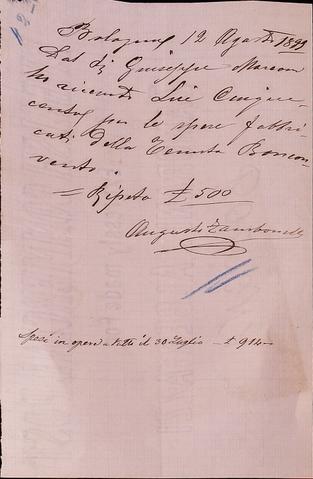 Bologna 12 Agosto 1899
Dal Sig Giuseppe Marconi
ho ricevuto Lire Cinque-
cento per le spese fabbri-
cati della Tenuta Boncon-
vento.
= Ripeto £ 500
Augusto Zambonelli
Spese in opere a tutto il 30 Luglio — £ 914—